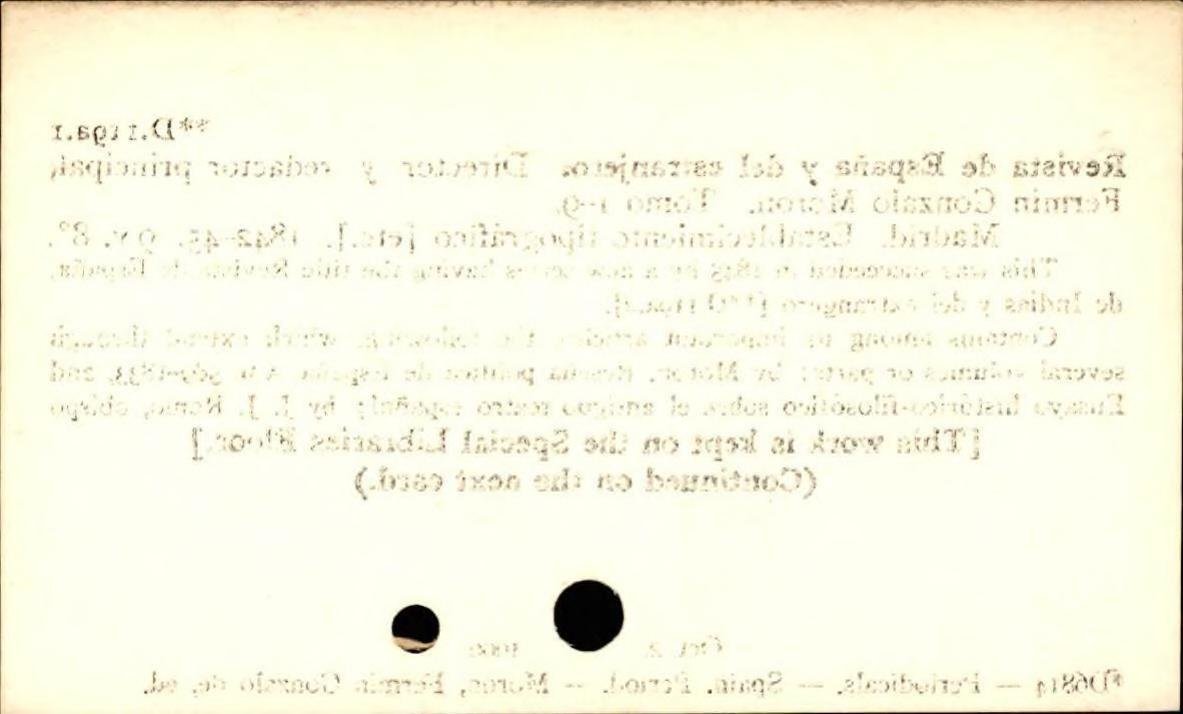 **D.119a.1
Revista de España y del estranjero. Director y redactor principal,
Fermin Gonzalo Moron. Tomo 1-9.
Madrid. Establecimiento tipográfico [etc.]. 1842-45. 9 v. 8º.
This was succeeded in 1845 by a new series having the title Revista de España,
de Indias y del extrangero
Contains among its important articles the following, which extend through
several volumes or parts: by Moron, Reseña política de España, and
Ensayo histórico-filosófico sobre el antiguo teatro español; by J. J. Romo, obispo
[This work is kept on the Special Libraries Floor.]
(Continued on the next card.)
Oct. 2,
*D6814 — Periodicals. — Spain. Period. — Moron, Fermin Gonzalo de, ed.